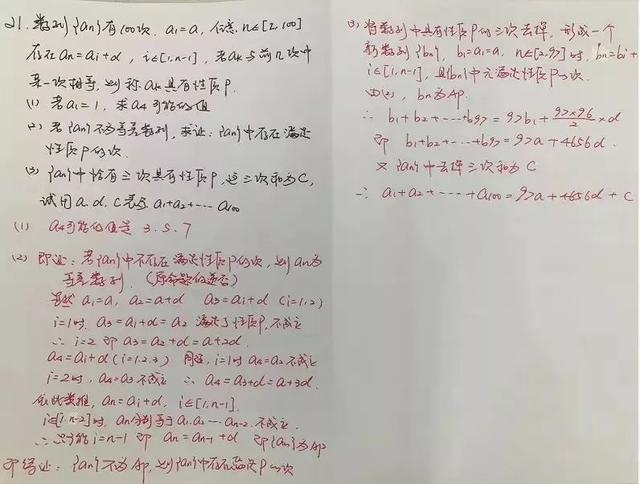 21. 数列{an}有100项. a1=a, 任意 n∈[2,100]
存在 an=ai+d, i∈[1,n-1], 若ak与前n项中
某一项相等, 则称ak具有性质P.
(1) 若a1=1, 求a4可能的值
(2) 若{an}不为等差数列, 求证: {an}中存在满足
性质P的项.
(3) {an}中恰有三项具有性质P, 这三项和为C,
试用a.d.C表示 a1+a2+…a100
(1) a4可能的值是 3.5.7
(2) 即证: 若{an}中不存在满足性质P的项, 则an为
等差数列. (原命题的逆否)
显然 a1=a, a2=a+d a3=ai+d (i=1,2)
i=1时, a3=a1+d=a2 满足了性质P, 不成立
∴ i=2 即 a3=a2+d=a+2d.
a4=ai+d (i=1.2.3) 同理, i=1时 a4=a2 不成立
i=2时, a4=a3 不成立 ∴ a4=a3+d=a+3d.
依此类推, an=ai+d, i∈[1,n-1].
i∈[1,n-2]时, an分别等于a1.a2…an-2. 不成立.
∴ 只可能 i=n-1 即 an=an-1+d 即{an}为AP
即得证: {an}不为AP, 则{an}中存在满足P的项
(3) 将数列中具有性质P的三项去掉, 形成一个
新数列{bn}, b1=a1=a, n∈[2,97]时, bn=bi+
i∈[1,n-1], 且{bn}中无满足性质P的项.
由(2), bn为AP.
∴ b1+b2+…+b97=97b1+97×96/2×d
即 b1+b2+…+b97=97a+4656d.
又{an}中去掉三项和为C
∴ a1+a2+……+a100=97a+4656d+C